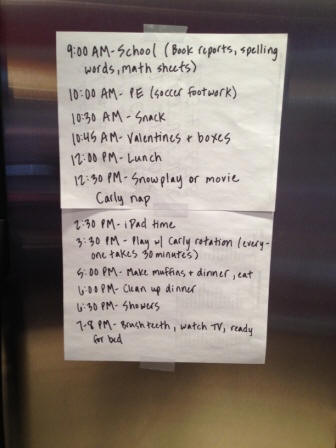 9:00 AM- School (Book reports, spelling
words, math sheets)
10:00 AM- PE (soccer footwork)
10:30 AM - Snack
10:45 AM- Valentines + boxes
12:00 PM- Lunch
12:30 PM- Snowplay or movie
Carly nap
2:30 PM- iPad time
3:30 PM- Play w/ Carly rotation (every-
one takes 30 minutes)
5:00 PM- Make muffins + dinner, eat
6:00 PM- Clean up dinner
6:30 PM- Showers
7-8 PM- Brush teeth, watch TV, ready
for bed